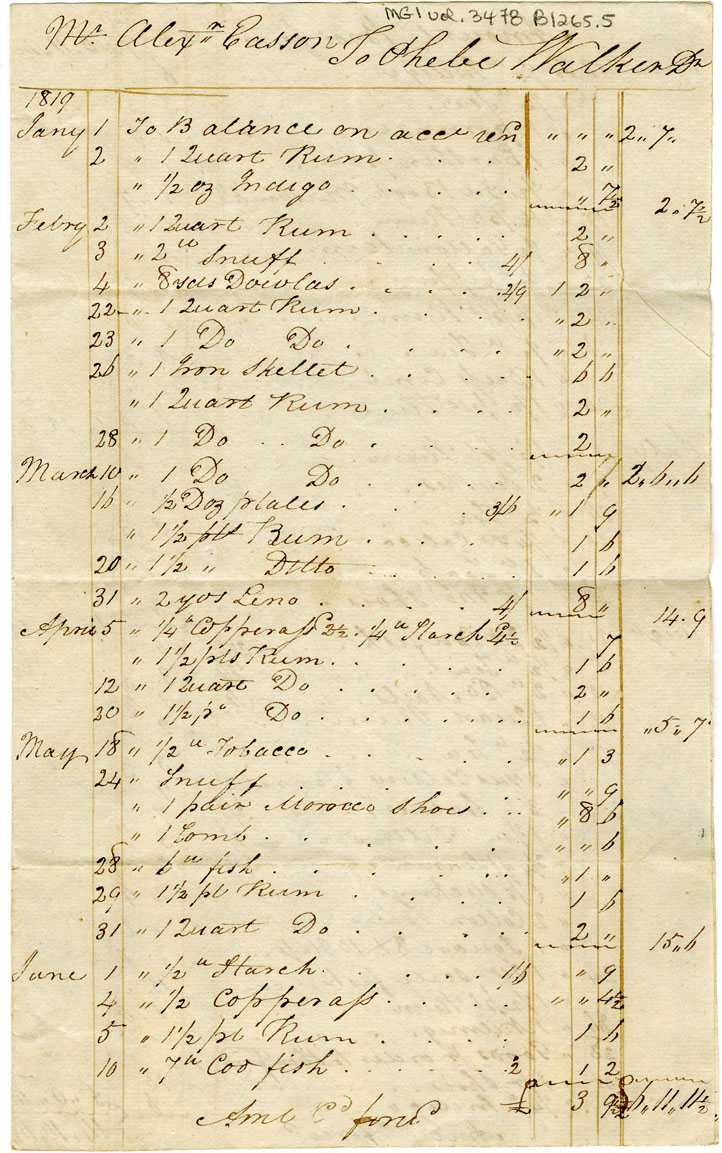 MG1 vol. 3478 B1265.5
Mr Alexr Easson To Phebe Walker Dr
1819
Jany 1 To Balance on acct " " " 2 " 7 "
2 " 1 Quart Rum 2 "
" 1/2 oz Indigo " 7 1/2 2 " 7 1/2
Febry 2 " 1 Quart Rum 2 "
3 " 2 lb Snuff 4/ 8 "
4 " 8 yds Dowlas 2/9 1 2 "
22 " 1 Quart Rum " 2 "
23 " 1 Do Do " 2 "
26 " 1 Iron Skellet 6 6
" 1 Quart Rum 2 "
28 " 1 Do Do 2
March 10 " 1 Do Do 2 " 2 " 6 " 6
16 " 1/2 Doz plates 3/6 " 1 9
" 1 1/2 pts Rum 1 6
20 " 1 1/2 " Ditto 1 6
31 " 2 yds Leno 4/ 8 " 14 . 9
April 5 " 1/4 lb Copperass 2 1/2 . 1/4 lb Starch 4 1/2 7
" 1 1/2 pts Rum 1 6
12 " 1 Quart Do 2 "
20 " 1 1/2 pts Do 1 6 " 5 " 7
May 18 " 1/2 lb Tobacco " 1 3
24 " Snuff " " 9
" 1 pair Morocco Shoes " 8 6
" 1 Comb " " 6
28 " 6 lb fish " 1 "
29 " 1 1/2 pt Rum 1 6
31 " 1 Quart Do 2 " 15 " 6
June 1 " 1/2 lb Starch 1/6 " 9
4 " 1/2 Copperass " " 4 1/2
5 " 1 1/2 pt Rum 1 6
10 " 7 lb Cod fish 2 1 2
Amt Cd ford £ 3 9 1/2 £6 " 11 " 11 1/2